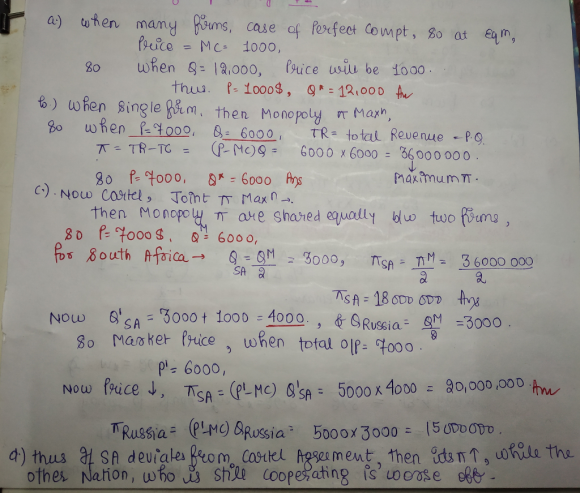 a.) when many firms, case of Perfect Compt, so at eqm,
Price = MC = 1000,
so when Q = 12,000, Price will be 1000.
thus. P = 1000$, Q* = 12,000 Ans
b.) when single firm, then Monopoly π Maxn,
so when P=7000, Q = 6000, TR = total Revenue = PQ
π = TR-TC = (P-MC)Q = 6000 x 6000 = 36000000.
↓
so P = 7000, Q* = 6000 Ans Maximum π.
c.). Now Cartel, Joint π Maxn →.
then Monopoly π are shared equally b/w two firms,
so P = 7000$, QM = 6000,
for South Africa → QSA = QM/2 = 3000, πSA = πM/2 = 36000000/2
πSA = 18000000 Ans
Now Q'SA = 3000 + 1000 = 4000., & QRussia = QM/2 = 3000.
so Market Price, when total o/p = 7000.
P' = 6000,
Now Price ↓, πSA = (P'-MC) Q'SA = 5000 x 4000 = 20,000,000. Ans
πRussia = (P'-MC) QRussia = 5000 x 3000 = 15000000.
d) thus If SA deviates from Cartel Agreement, then its π↑, while the
other Nation, who is still cooperating is worse off.